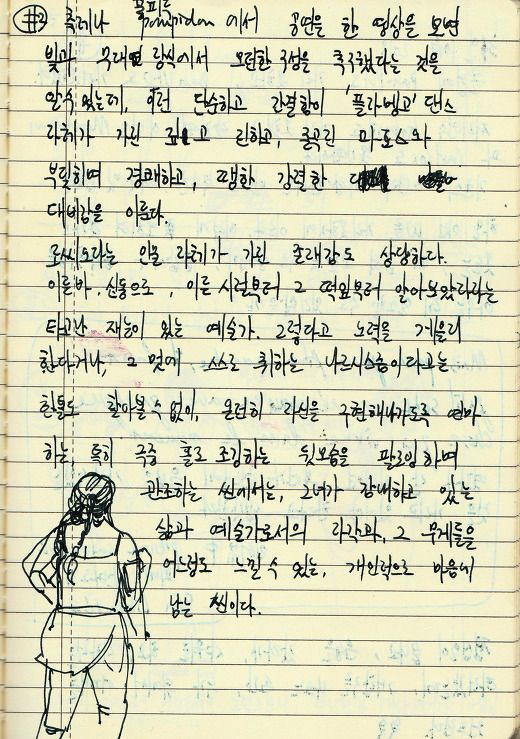 #3 폴피드 에서 공연을 한 영상을 보면
빛과 무대 에서 오묘한 구성을 추구했다는 것을
알 수 있는데, 이런 단순하고 간결함이 '플라멩고' 댄스
가진 하고, 굴곡진
부딪히며 경쾌하고, 쨍한 강렬한
대비감을 이룬다.
로씨오라는 인물 자체가 가진 존재감도 상당하다.
이른바, 신동으로, 이른 시절부터 그 떡잎부터 알아보았더라는
타고난 재능이 있는 예술가. 그렇다고 노력을 게을리
한다거나, 그 멋에 스스로 취하는 나르시스즘이라고는
한톨도 찾아볼 수 없이, 온전히 자신을 구현해나가도록 연마
하는, 특히 극중 홀로 하는 뒷모습을 팔로잉하며
관조하는 씬에서는, 그녀가 감내하고 있는
삶과 예술가로서의 자각과, 그 무게들을
어느정도 느낄 수 있는, 개인적으로 마음에
남는 씬이다.